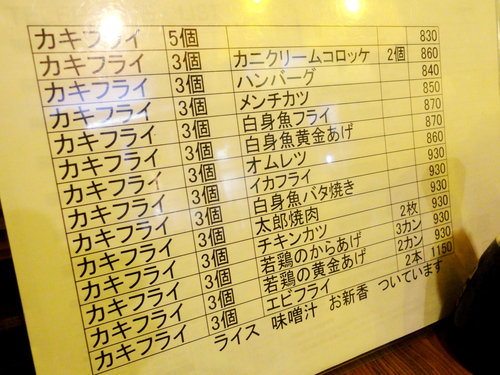 カキフライ 5個 830
カキフライ 3個 カニクリームコロッケ 2個 860
カキフライ 3個 ハンバーグ 840
カキフライ 3個 メンチカツ 850
カキフライ 3個 白身魚フライ 870
カキフライ 3個 白身魚黄金あげ 870
カキフライ 3個 オムレツ 860
カキフライ 3個 イカフライ 930
カキフライ 3個 白身魚バタ焼き 930
カキフライ 3個 太郎焼肉 930
カキフライ 3個 チキンカツ 2枚 930
カキフライ 3個 若鶏のからあげ 3カン 930
カキフライ 3個 若鶏の黄金あげ 2カン 930
カキフライ 3個 エビフライ 2本 1150
ライス 味噌汁 お新香 ついています